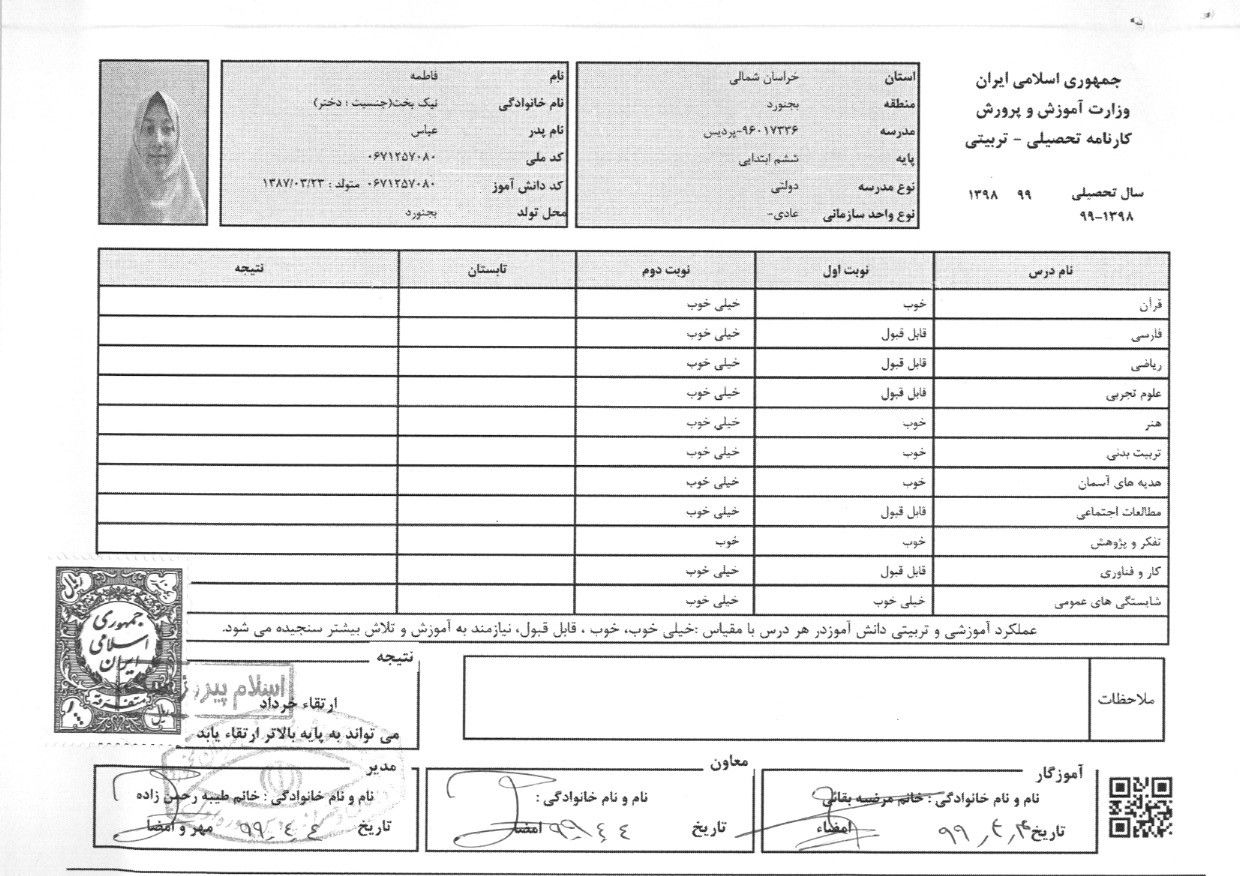 جمهوری اسلامی ایران
وزارت آموزش و پرورش
کارنامه تحصیلی - تربیتی
سال تحصیلی ۹۹ ۱۳۹۸
۱۳۹۸-۹۹
استان خراسان شمالی
منطقه بجنورد
مدرسه ۹۶۰۱۷۳۳۶-پردیس
پایه ششم ابتدایی
نوع مدرسه دولتی
نوع واحد سازمانی عادی-
نام فاطمه
نام خانوادگی نیک بخت(جنسیت : دختر)
نام پدر عباس
کد ملی ۰۶۷۱۲۵۷۰۸۰
کد دانش آموز ۰۶۷۱۲۵۷۰۸۰ متولد : ۱۳۸۷/۰۳/۲۳
محل تولد بجنورد
نام درس نوبت اول نوبت دوم تابستان نتیجه
قرآن خوب خیلی خوب
فارسی قابل قبول خیلی خوب
ریاضی قابل قبول خیلی خوب
علوم تجربی قابل قبول خیلی خوب
هنر خوب خیلی خوب
تربیت بدنی خوب خیلی خوب
هدیه های آسمان خوب خیلی خوب
مطالعات اجتماعی قابل قبول خیلی خوب
تفکر و پژوهش خوب خوب
کار و فناوری قابل قبول خیلی خوب
شایستگی های عمومی خیلی خوب خیلی خوب
عملکرد آموزشی و تربیتی دانش آموزدر هر درس با مقیاس :خیلی خوب، خوب ، قابل قبول، نیازمند به آموزش و تلاش بیشتر سنجیده می شود.
ملاحظات
نتیجه
ارتقاء خرداد
می تواند به پایه بالاتر ارتقاء یابد
ریال
جمهوری
اسلامی
ایران
متفرقه
ریال
اسلام
آموزگار
نام و نام خانوادگی : خانم مرضیه بقائی
تاریخ ۹۹٫۴٫۴ امضاء
معاون
نام و نام خانوادگی :
تاریخ ۹۹٫۴٫۴ امضا
مدیر
نام و نام خانوادگی : خانم طیبه رحمن زاده
تاریخ ۹۹٫۴٫۴ مهر و امضا